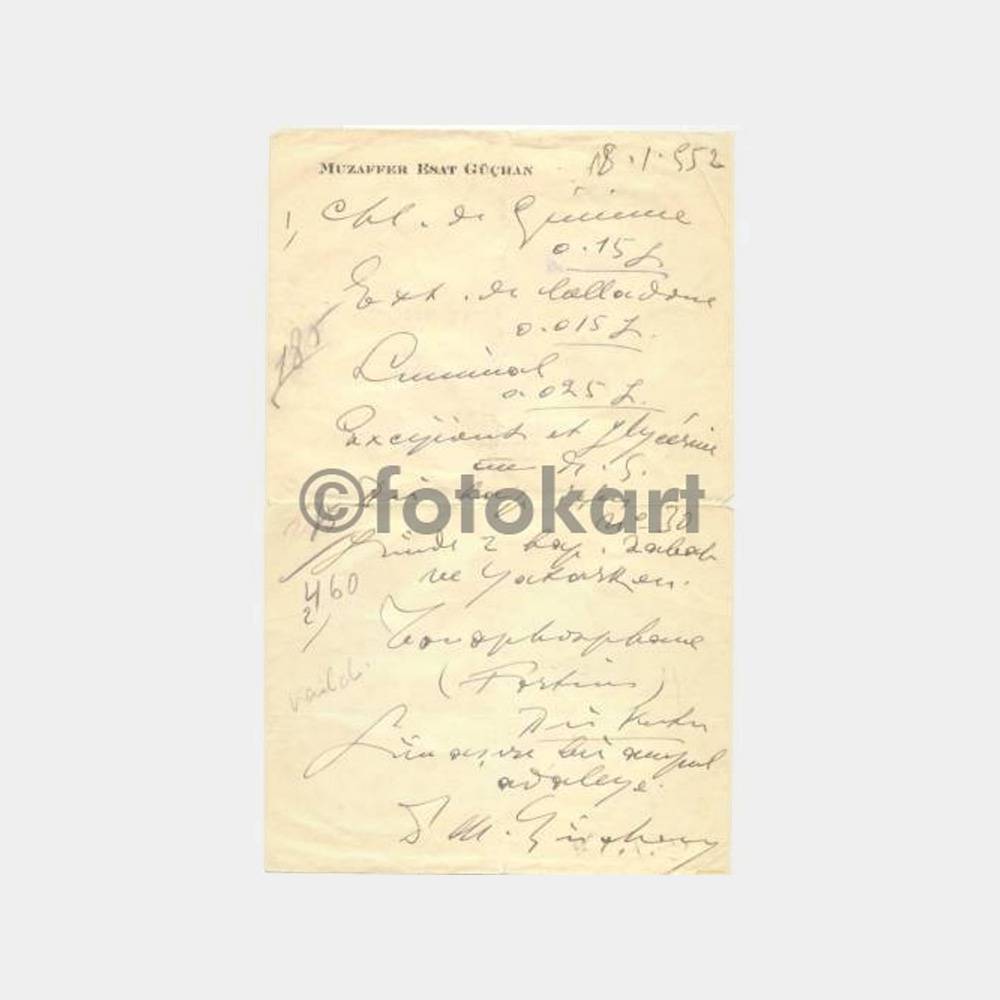 MUZAFFER ESAT GÜÇHAN
18.1.952
1, Chl. de Quinine
0.15 g.
Ext. de belladone
0.015 g.
185
Luminal
0.025 g.
Excipient et glycérine
©fotokart
30
Günde 2 kap. sabah
ve yatarken.
460
2,
Tonophosphane
(Fortius)
Bir kutu
verildi.
Gün aşırı bir ampul
adaleye.
Dr M. Güçhan